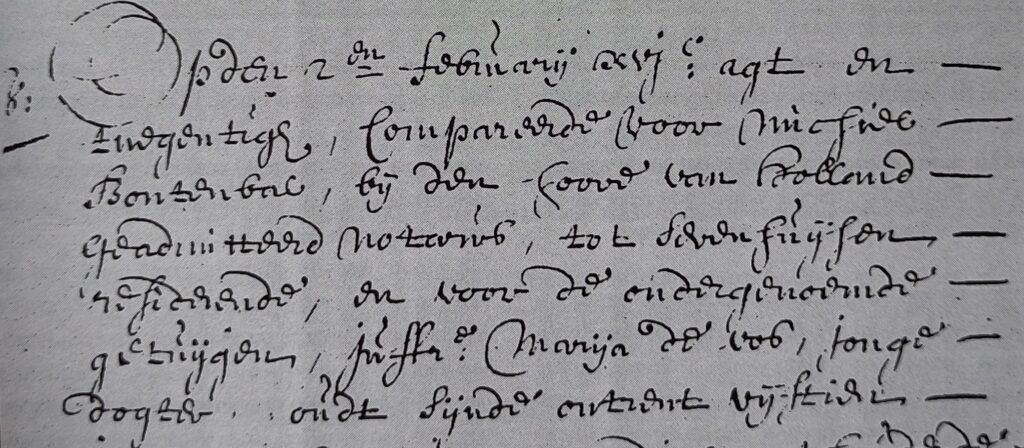 Opden 2en februarij xvjc agt en
tnegentigh, Compareerde voor Michiel
Bontenbal, bij den hoove van Holland
geadmitteerd notaris, tot sevenhuijsen
residerende, en voor de ondergenoemde
getuijgen, juffre Marija de vos, jonge
dogter oudt sijnde ontrent vijftien